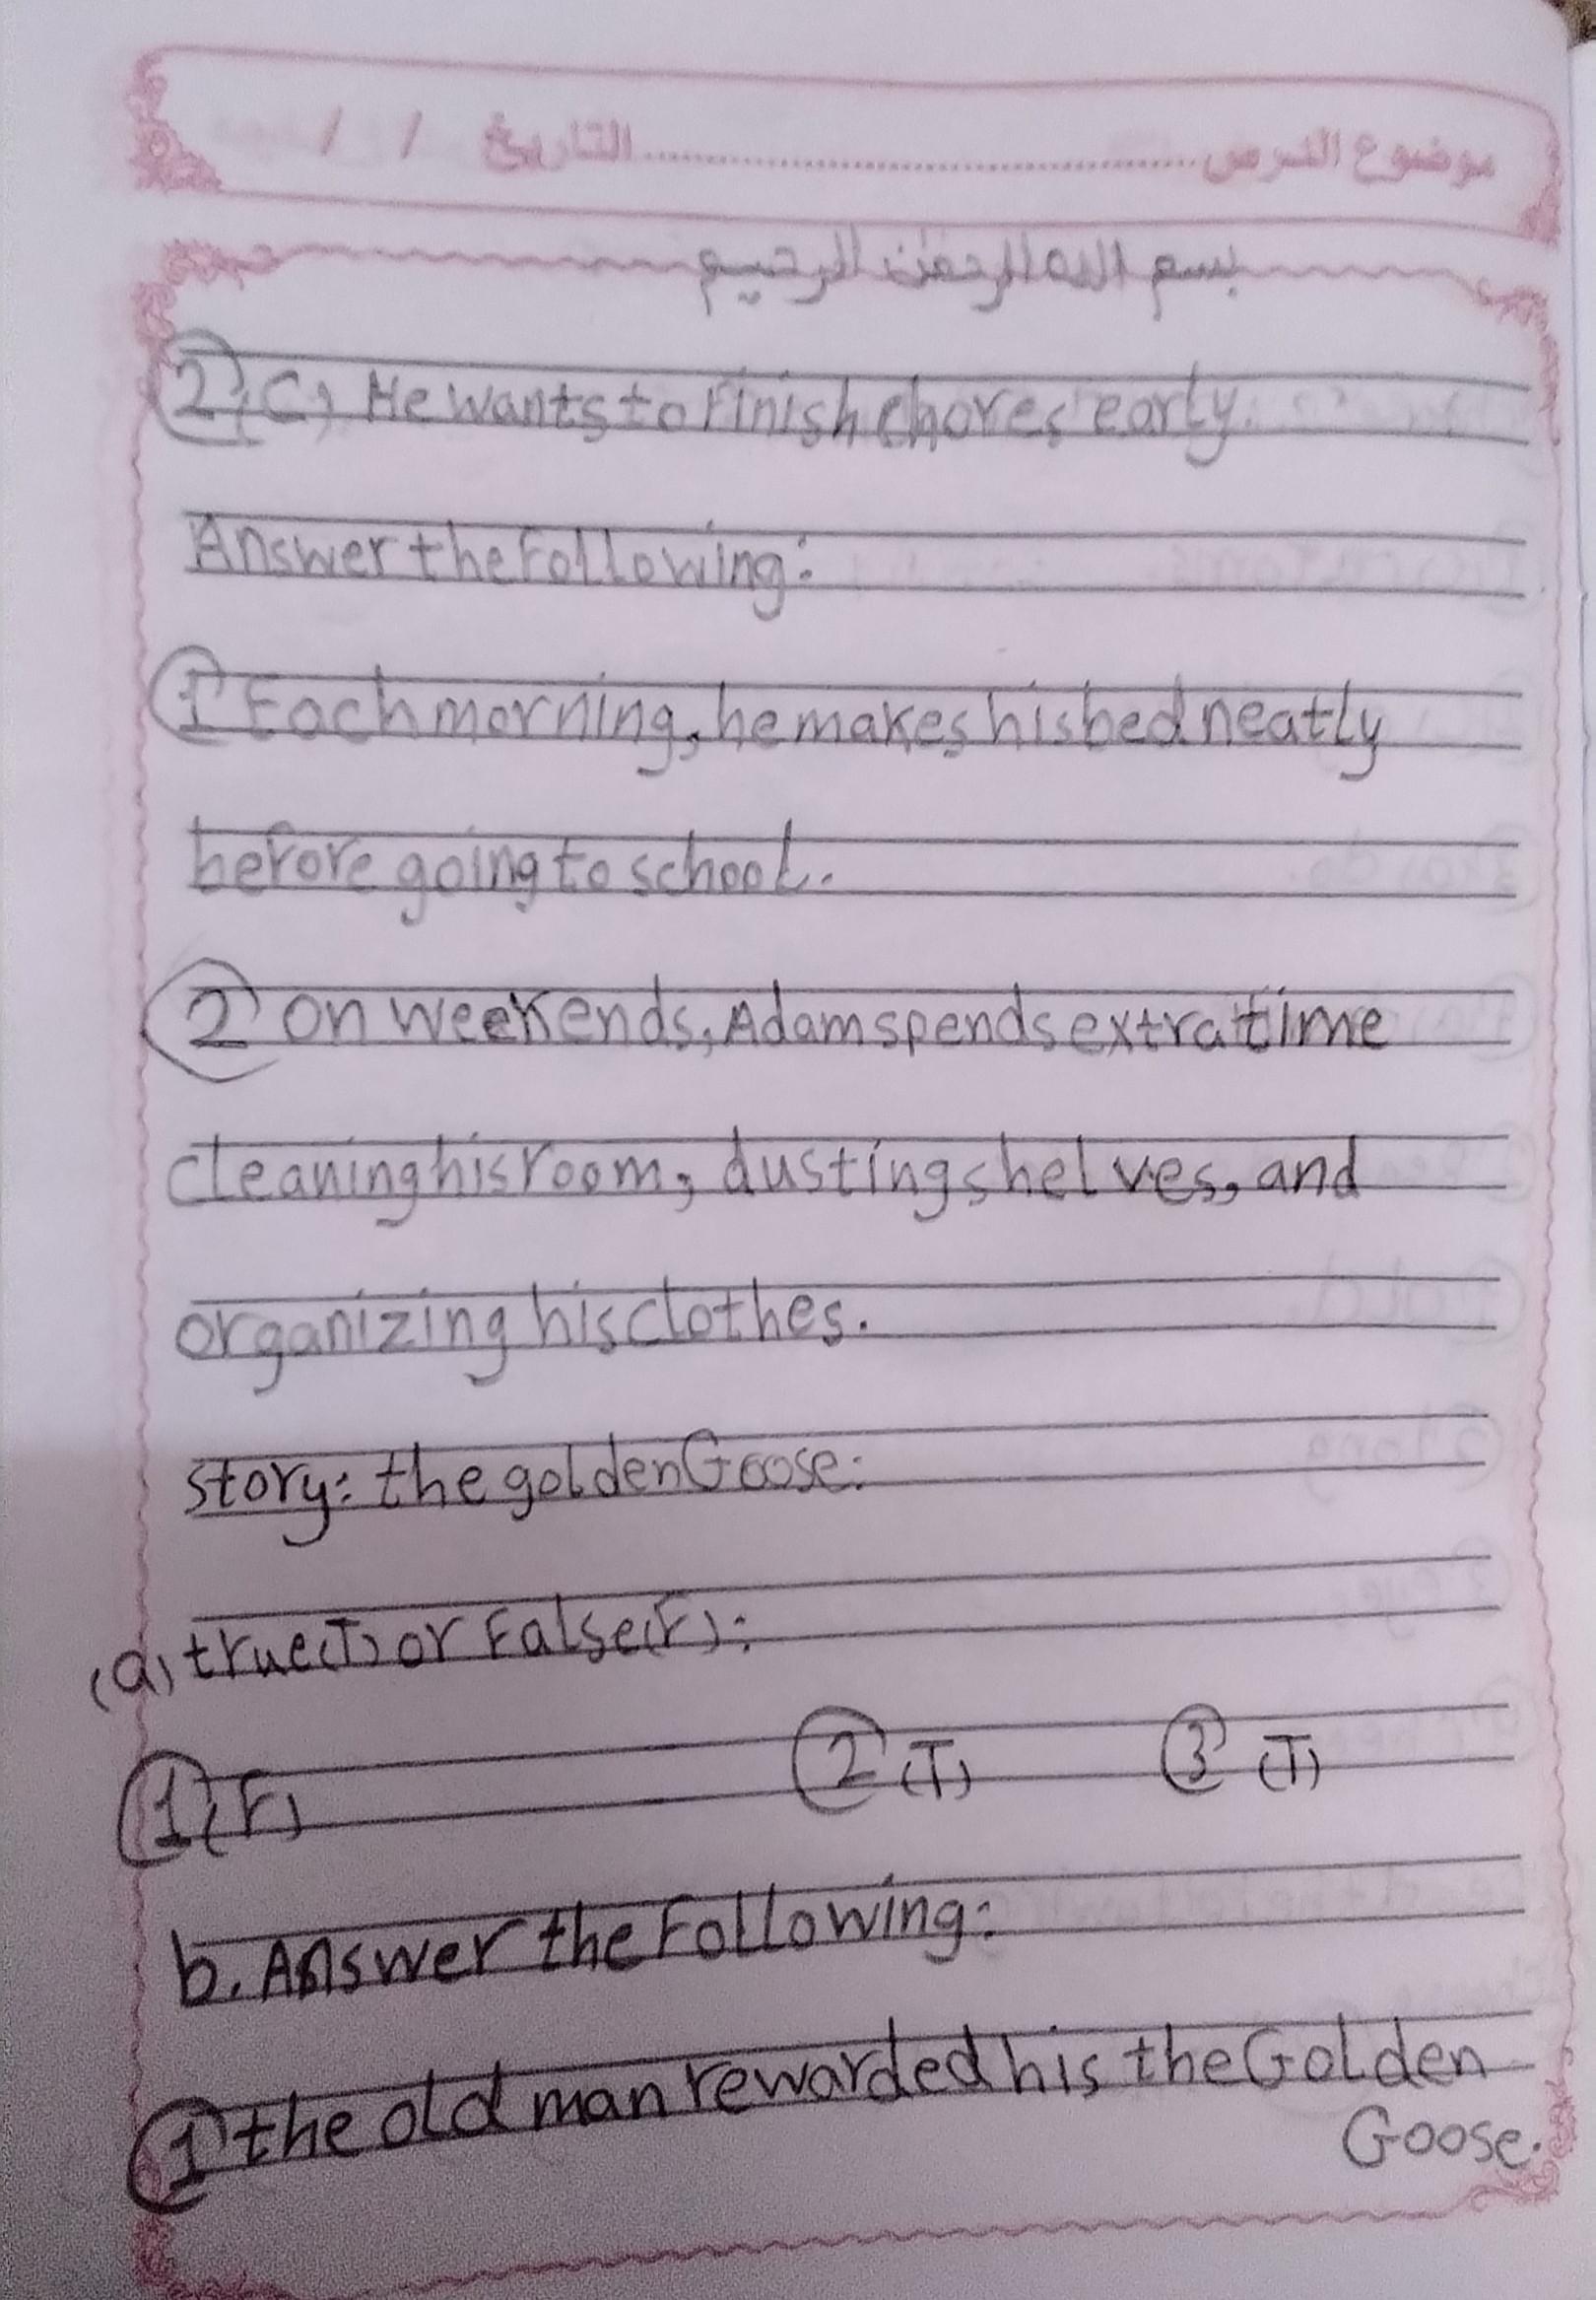 موضوع الدرس ........................ التاريخ / /
بسم الله الرحمن الرحيم
② (C) He wants to finish chores early.
Answer the Following:
① Each morning, he makes his bed neatly
before going to school.
② on weekends, Adam spends extra time
cleaning his room, dusting shelves, and
organizing his clothes.
story: the golden Goose:
(a) true(T) or False(F):
① (F) ② (T) ③ (T)
b. Answer the Following:
① the old man rewarded his the Golden
Goose.